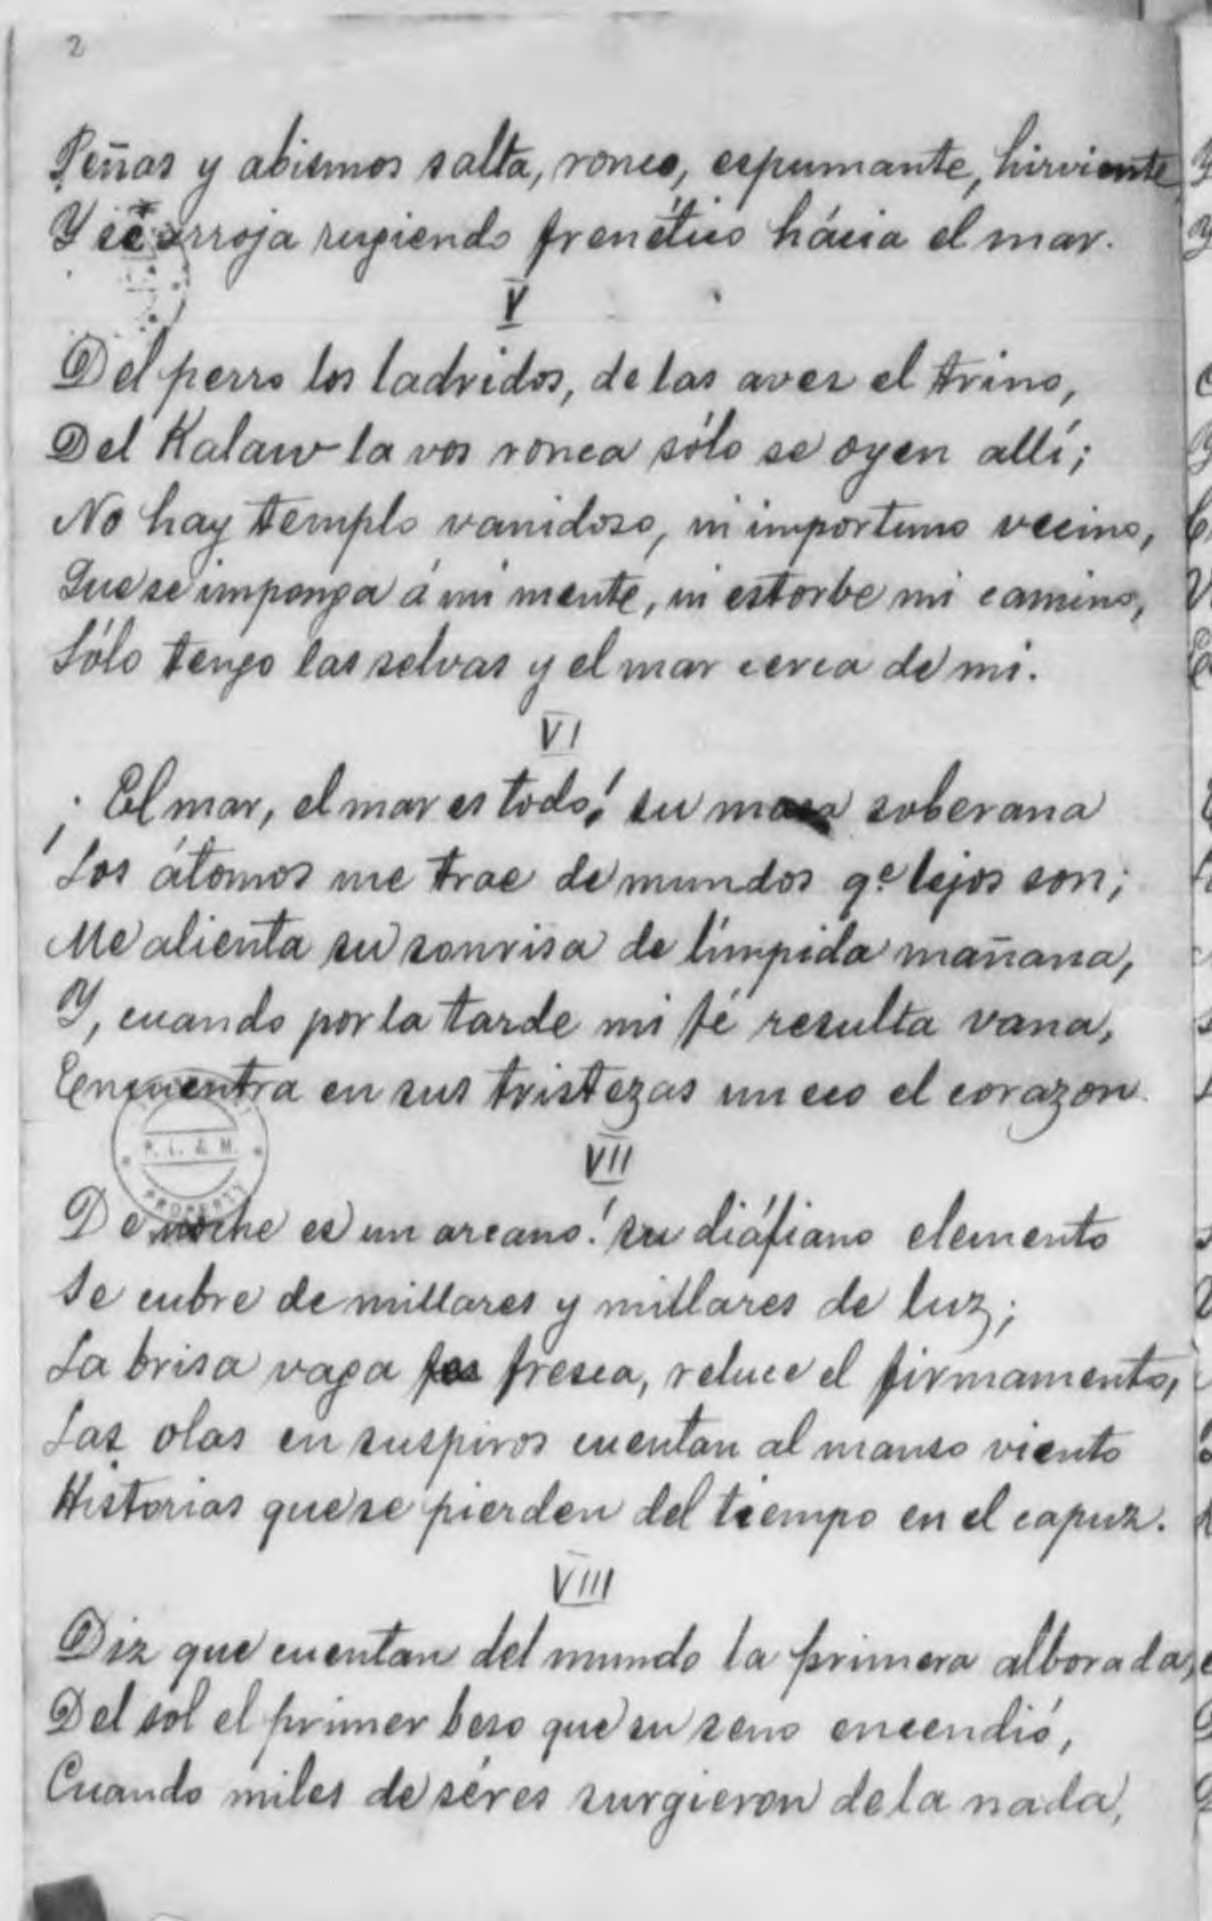 2
Peñas y abismos salta, ronco, espumante, hirviente
Y se arroja rugiendo frenético hácia el mar.
V
Del perro los ladridos, de las aves el trino,
Del Kalaw la vos ronca sólo se oyen allí;
No hay templo vanidoso, ni importuno vecino,
Que se imponga á mi mente, ni estorbe mi camino,
Sólo tengo las selvas y el mar cerca de mi.
VI
¡El mar, el mar es todo! su masa soberana
Los átomos me trae de mundos q.e lejos son;
Me alienta su sonrisa de límpida mañana,
Y, cuando por la tarde mi fé resulta vana,
Encuentra en sus tristezas un eco el corazon.
VII
De noche es un arcano! su diáfano elemento
Se cubre de millares y millares de luz;
La brisa vaga fresca, reluce el firmamento,
Las olas en suspiros cuentan al manso viento
Historias que se pierden del tiempo en el capuz.
VIII
Diz que cuentan del mundo la primera alborada,
Del sol el primer beso que su seno encendió,
Cuando miles de séres surgieron de la nada,
P. L. & M.
PROPERTY